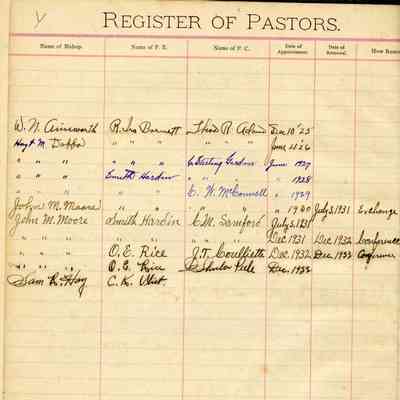 y
REGISTER OF PASTORS.
Name of Bishop. Name of P. E. Name of P. C. Date of Appointment. Date of Removal. How Remov
W. N. Ainsworth R. Ira Barnett Dec 10 '25
Hoyt M. Dobbs " " " " " " June 21 26
" " " " " " C. Sterling June 1927
" " " Smith Hardin " " " " 1928
" " " " " C. W. McConnell " 1929
John M. Moore " " " " " 1930 July 3, 1931 Exchange
John M. Moore Smith Hardin C. M. Sanford July 3, 1931
" " " " " " " Dec 1931 Dec 1932 Conference
" " " O. E. Rice J. T. Dec. 1932 Dec. 1933 Conference
" " " O. E. Rice Dec. 1933
Sam R. Hay C. K.